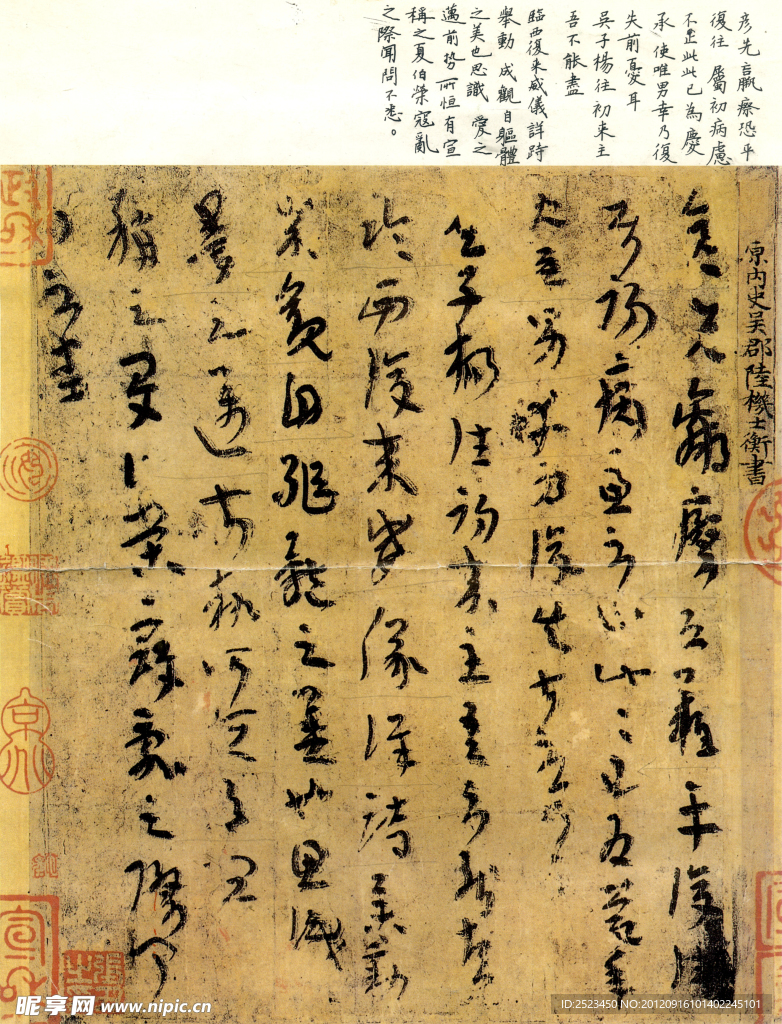 彦先羸瘵恐平
復往屬初病慮
不止此此已為慶
承使唯男幸乃復
失前憂耳
吳子楊往初来主
吾不能盡
臨西復来威儀詳跱
舉動成觀自軀體
之美也思識愛之
邁前势所恒有宣
稱之夏伯榮寇亂
之際聞問不悉。
原内史吳郡陸機士衡書
彦先羸瘵恐難平復往
屬初病慮不止此此已為慶承
使唯男幸為復失前憂耳
吳子楊往初来主吾不能盡
臨西復来威儀詳跱舉動
成觀自軀體之美也思識
之邁前執所恒有宜
稱之夏伯榮寇亂之際聞
問不悉
昵享网 www.nipic.cn
ID:2523450 NO:20120916101402245101